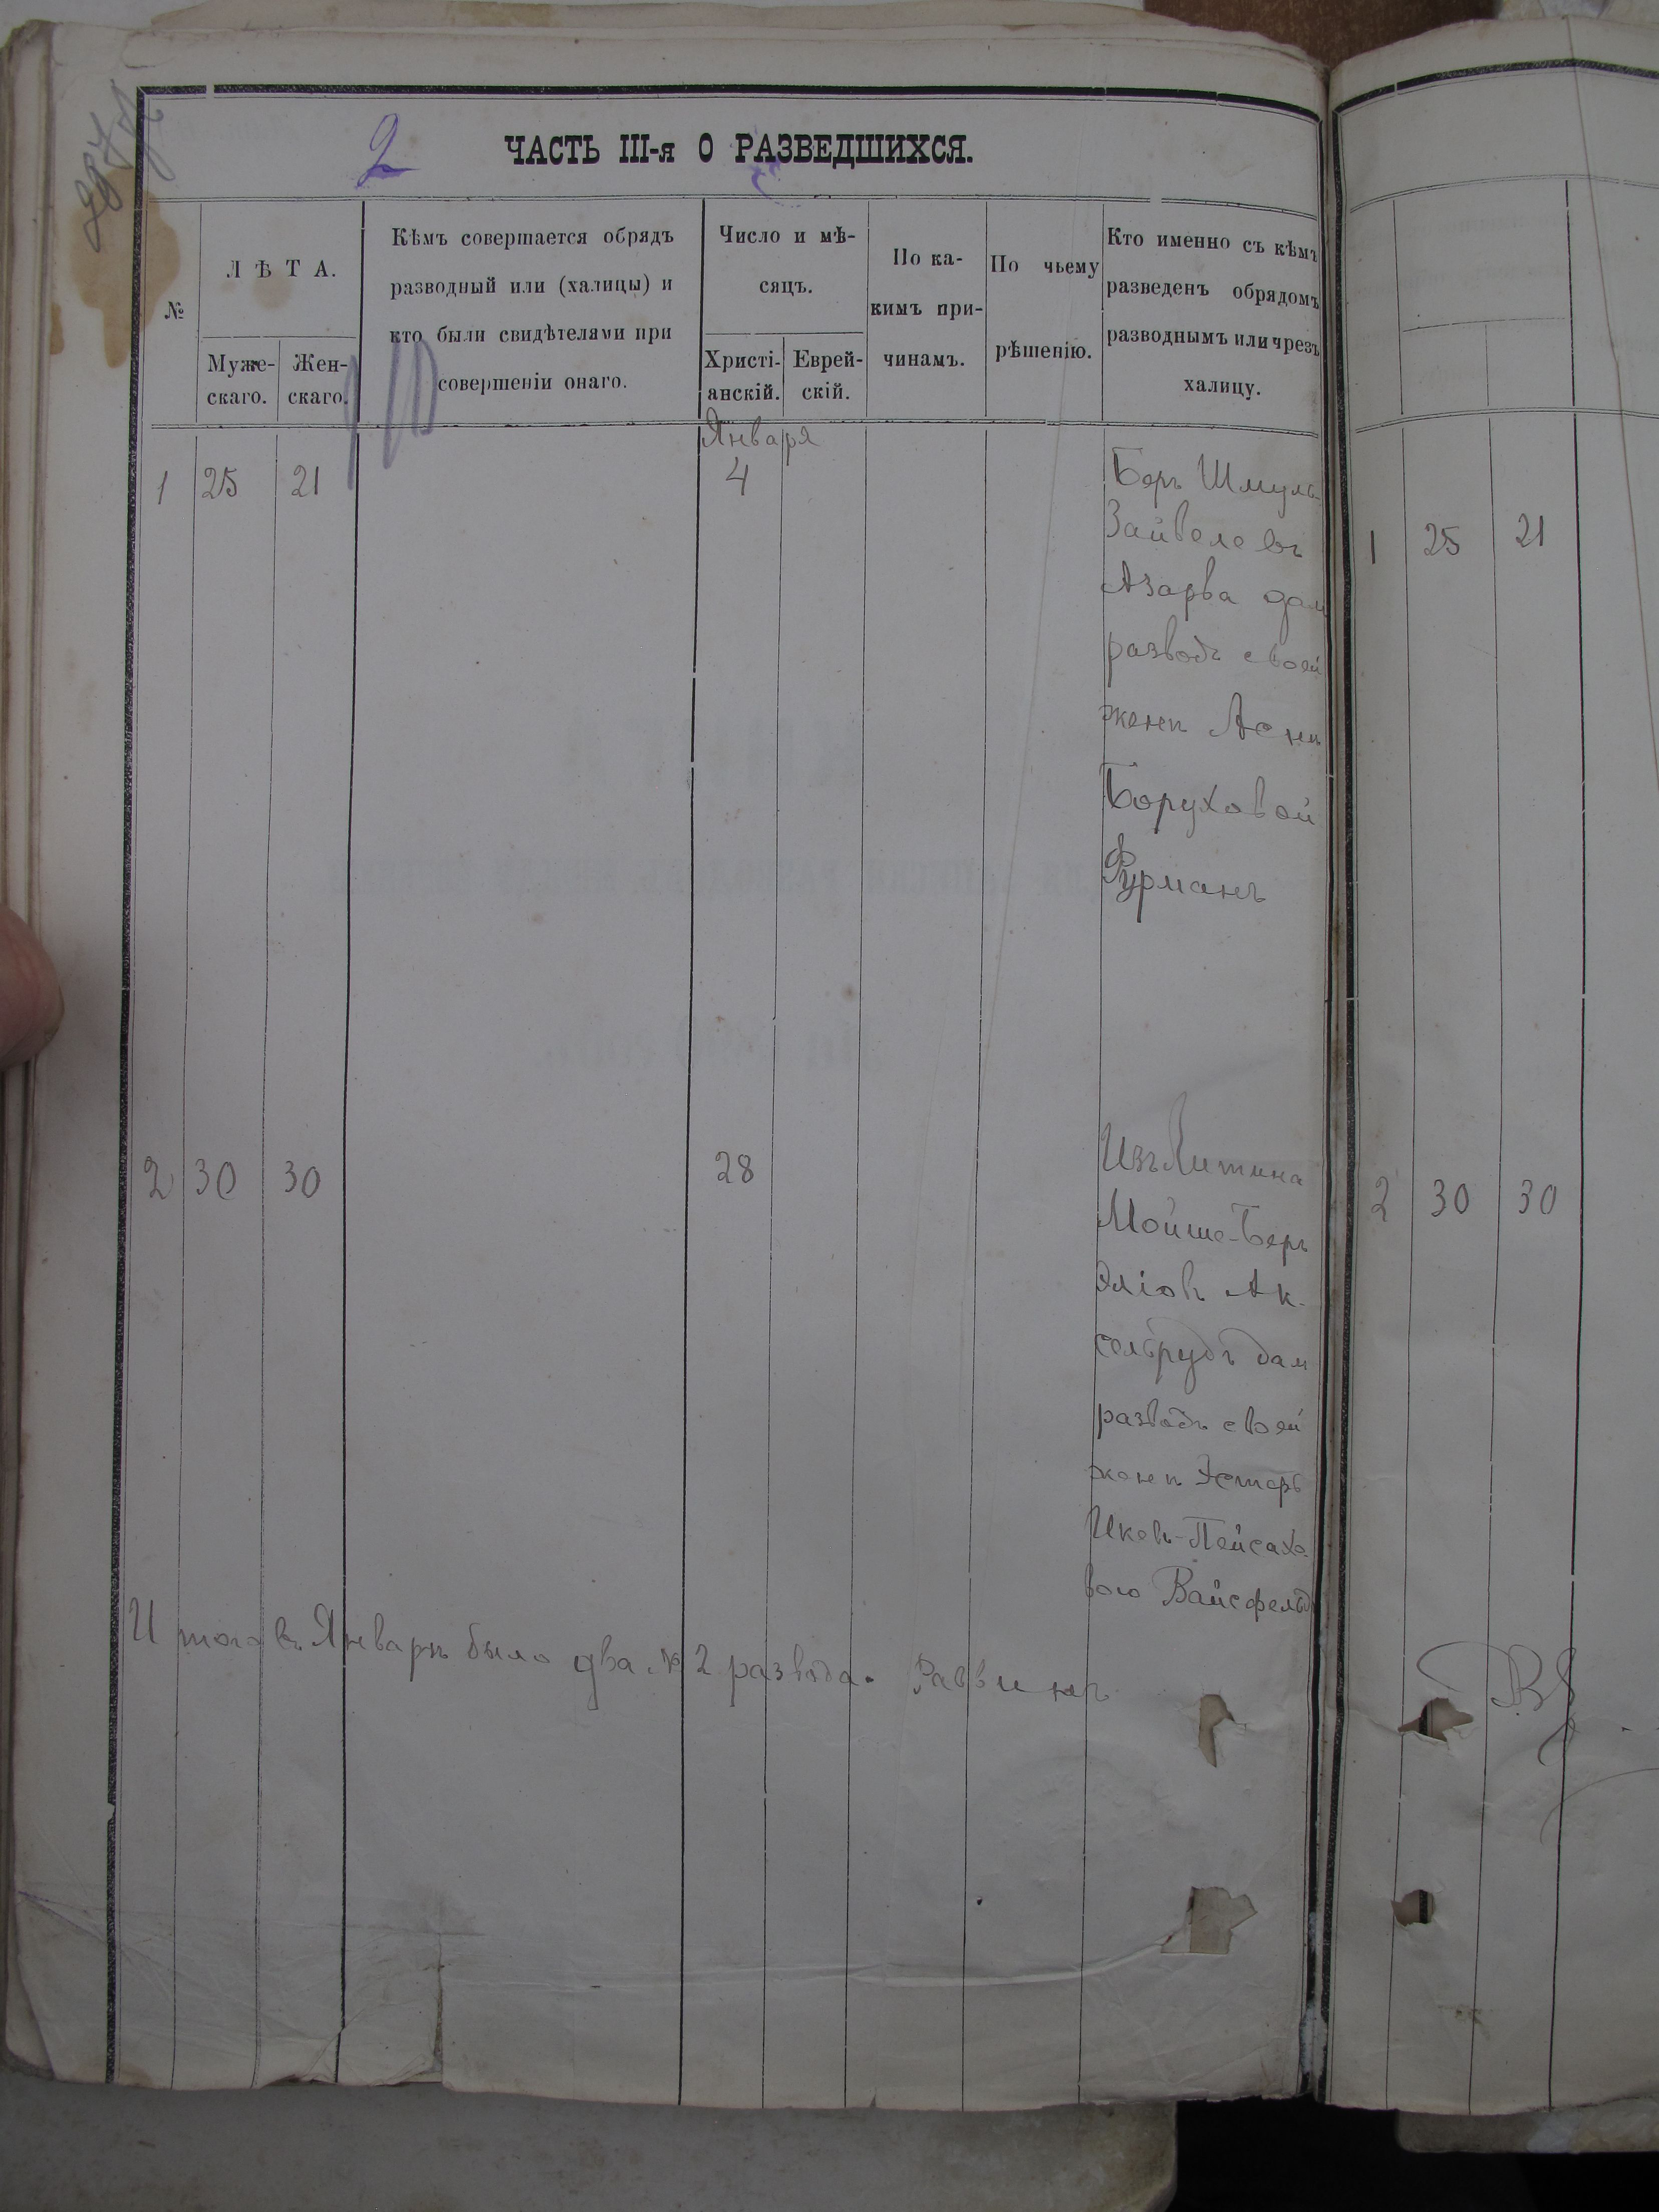 2
ЧАСТЬ III-я О РАЗВЕДШИХСЯ.
№
ЛѢТА.
Муже-
скаго.
Жен-
скаго.
Кѣмъ совершается обрядъ
разводный или (халицы) и
кто были свидѣтелями при
совершеніи онаго.
Число и мѣ-
сяцъ.
Христі-
анскій.
Еврей-
скій.
По ка-
кимъ при-
чинамъ.
По чьему
рѣшенію.
Кто именно съ кѣмъ
разведенъ обрядомъ
разводнымъ или чрезъ
халицу.
Января
1 25 21 4
Беръ Шмуль-
Зайвелевъ
Азарва дал
разводъ своей
женѣ Аснѣ
Боруховой
Фурманъ
2 30 30 28
Изъ Литина
Мойше-Беръ
Эліовъ Ак-
сельрудъ дал
разводъ своей
женѣ Эстеръ
Ицковъ-Пейсахо-
вою Вайсфельд
Итого въ Январѣ было два № 2 развода. Раввинъ
1 25 21
2 30 30